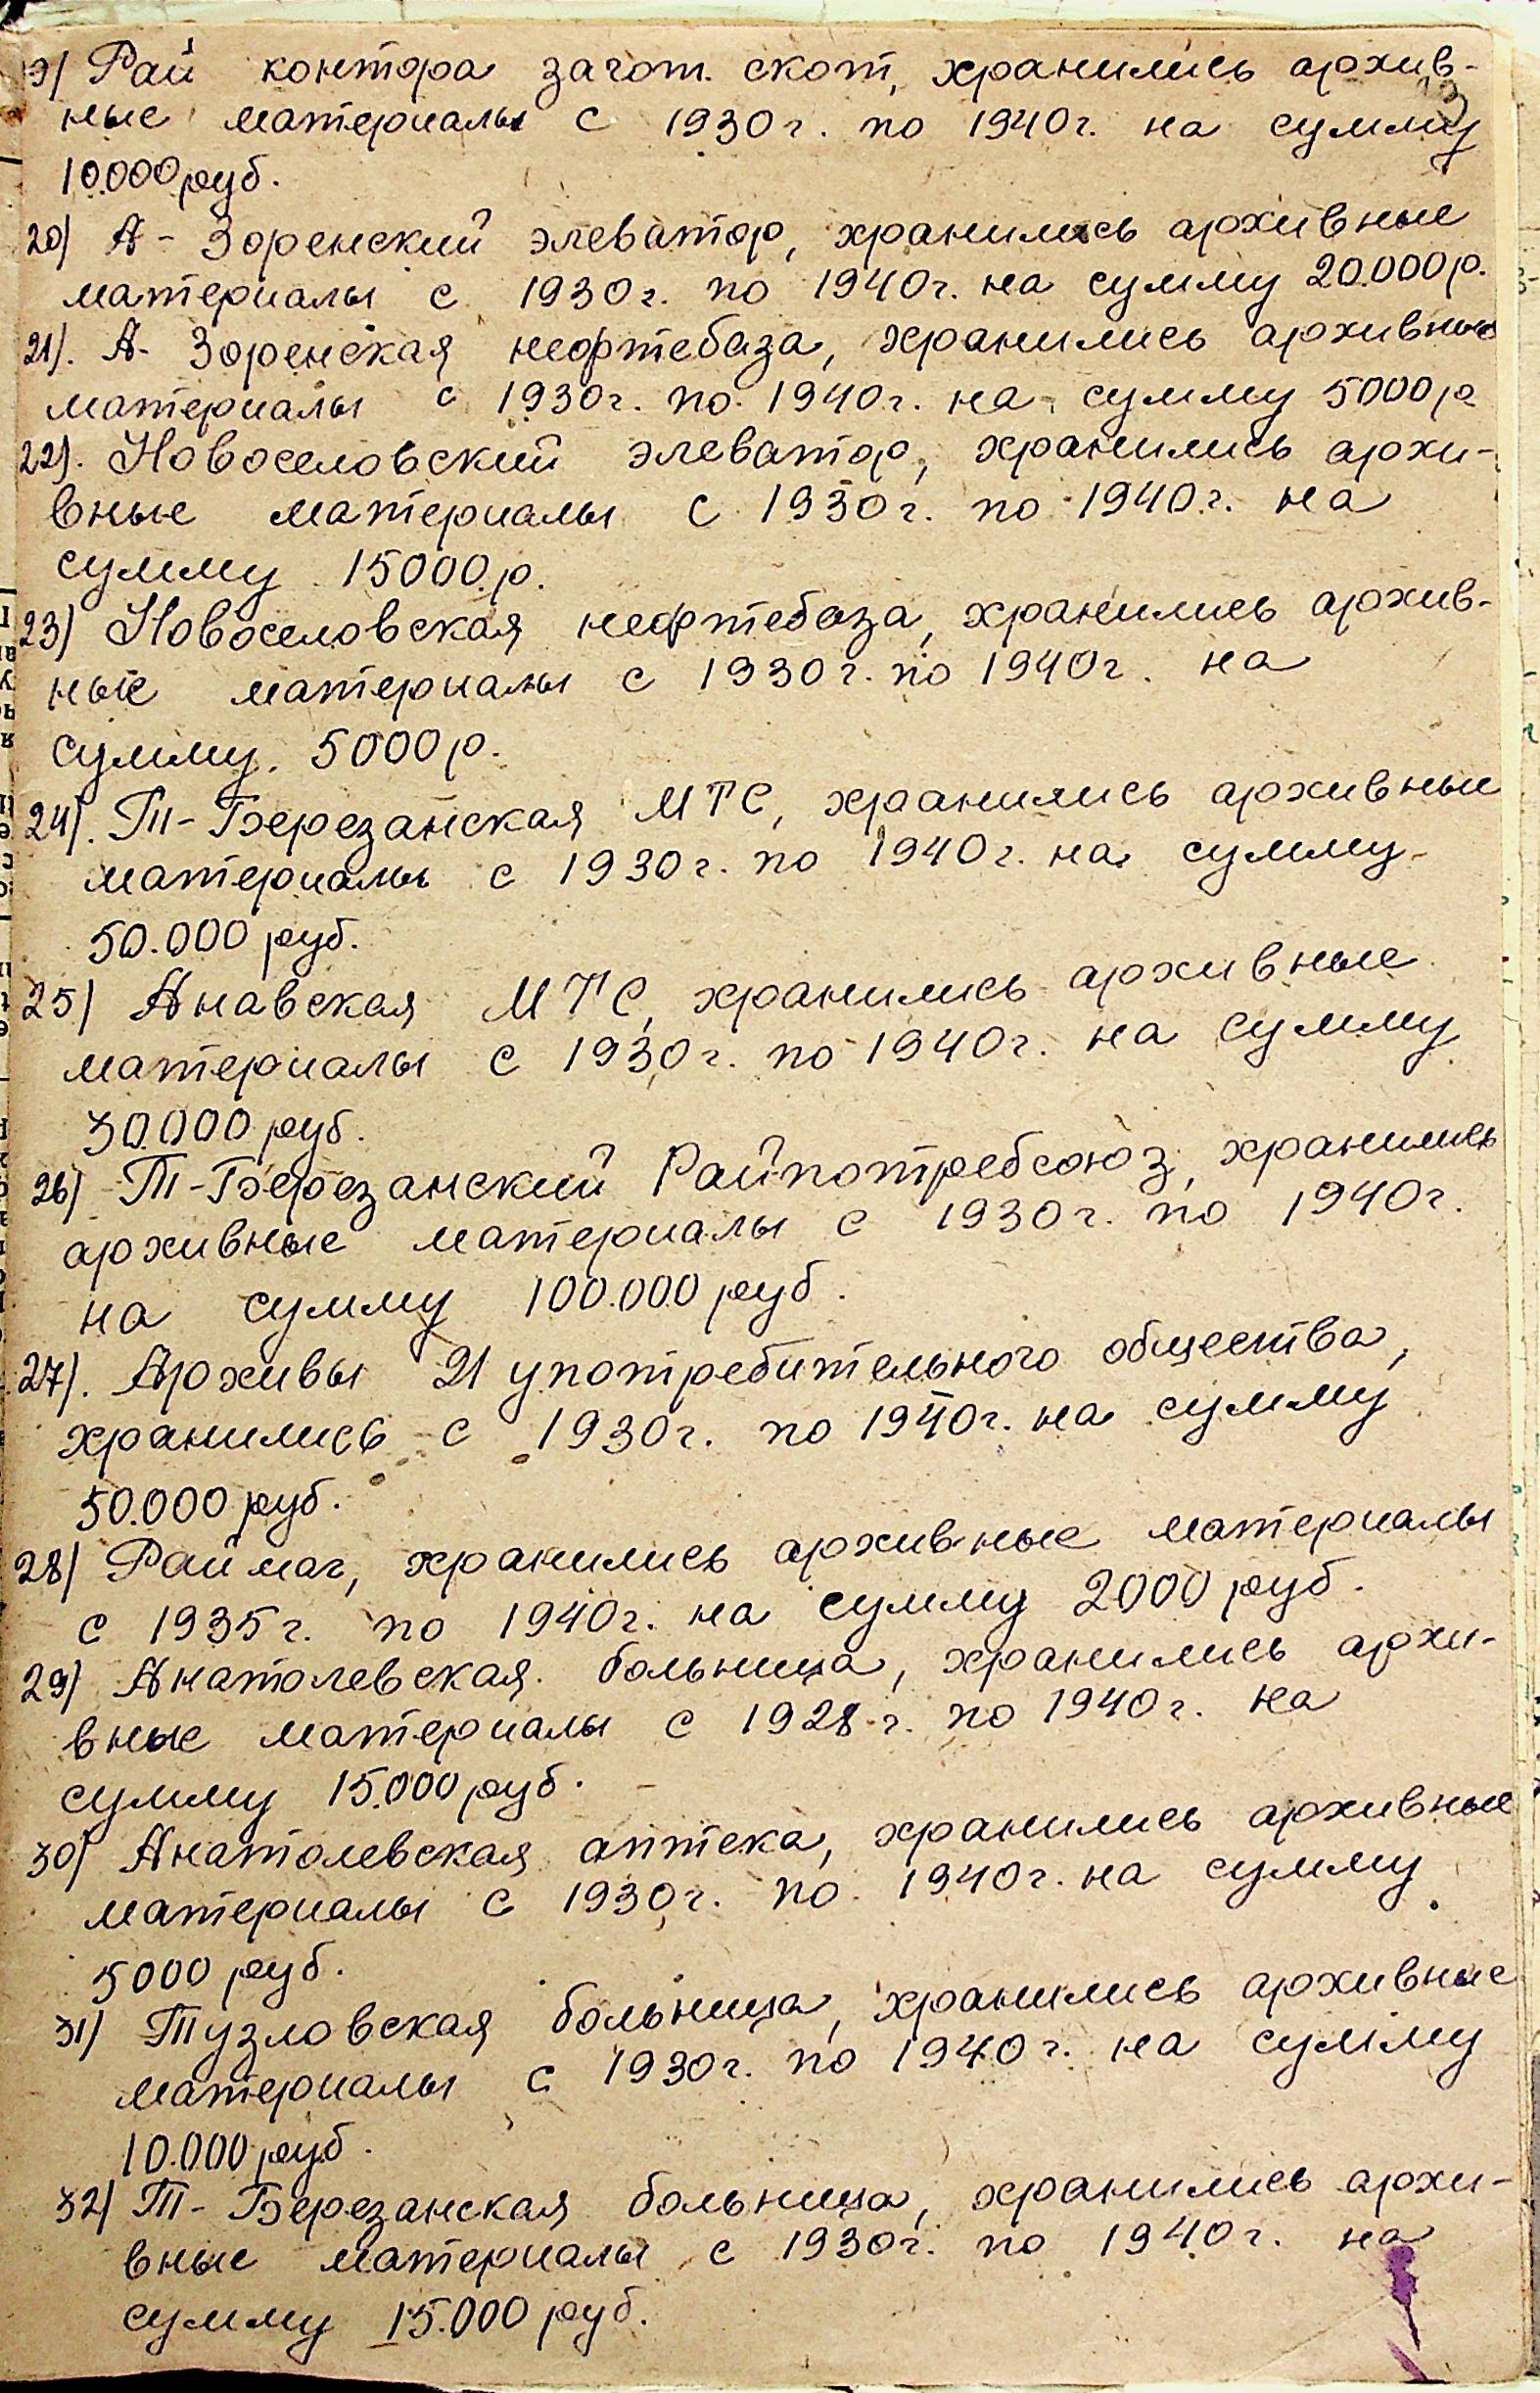 9) Рай контора загот. скот, хранились архив-
ные материалы с 1930 г. по 1940 г. на сумму
10.000 руб.
20) А - Зоренский элеватор, хранились архивные
материалы с 1930 г. по 1940 г. на сумму 20.000 р.
21). А - Зоренская нефтебаза, хранились архивные
материалы с 1930 г. по 1940 г. на сумму 5000 р
22). Новоселовский элеватор, хранились архи-
вные материалы с 1930 г. по 1940 г. на
сумму 15000 р.
23) Новоселовская нефтебаза, хранились архив-
ные материалы с 1930 г. по 1940 г. на
сумму. 5000 р.
24). Т-Березанская МТС, хранились архивные
материалы с 1930 г. по 1940 г. на сумму
50.000 руб.
25) Анавская МТС, хранились архивные
материалы с 1930 г. по 1940 г. на сумму
30.000 руб.
26) Т-Березанский Райпотребсоюз, хранились
архивные материалы с 1930 г. по 1940 г.
на сумму 100.000 руб.
27). Архивы 21 употребительного общества,
хранились с 1930 г. по 1940 г. на сумму
50.000 руб.
28) Раймаг, хранились архивные материалы
с 1935 г. по 1940 г. на сумму 2000 руб.
29) Анатолевская больница, хранились архи-
вные материалы с 1928 г. по 1940 г. на
сумму 15.000 руб.
30) Анатолевская аптека, хранились архивные
материалы с 1930 г. по 1940 г. на сумму
5000 руб.
31) Тузловская больница, хранились архивные
материалы с 1930 г. по 1940 г. на сумму
10.000 руб.
32) Т- Березанская больница, хранились архи-
вные материалы с 1930 г. по 1940 г. на
сумму 15.000 руб.